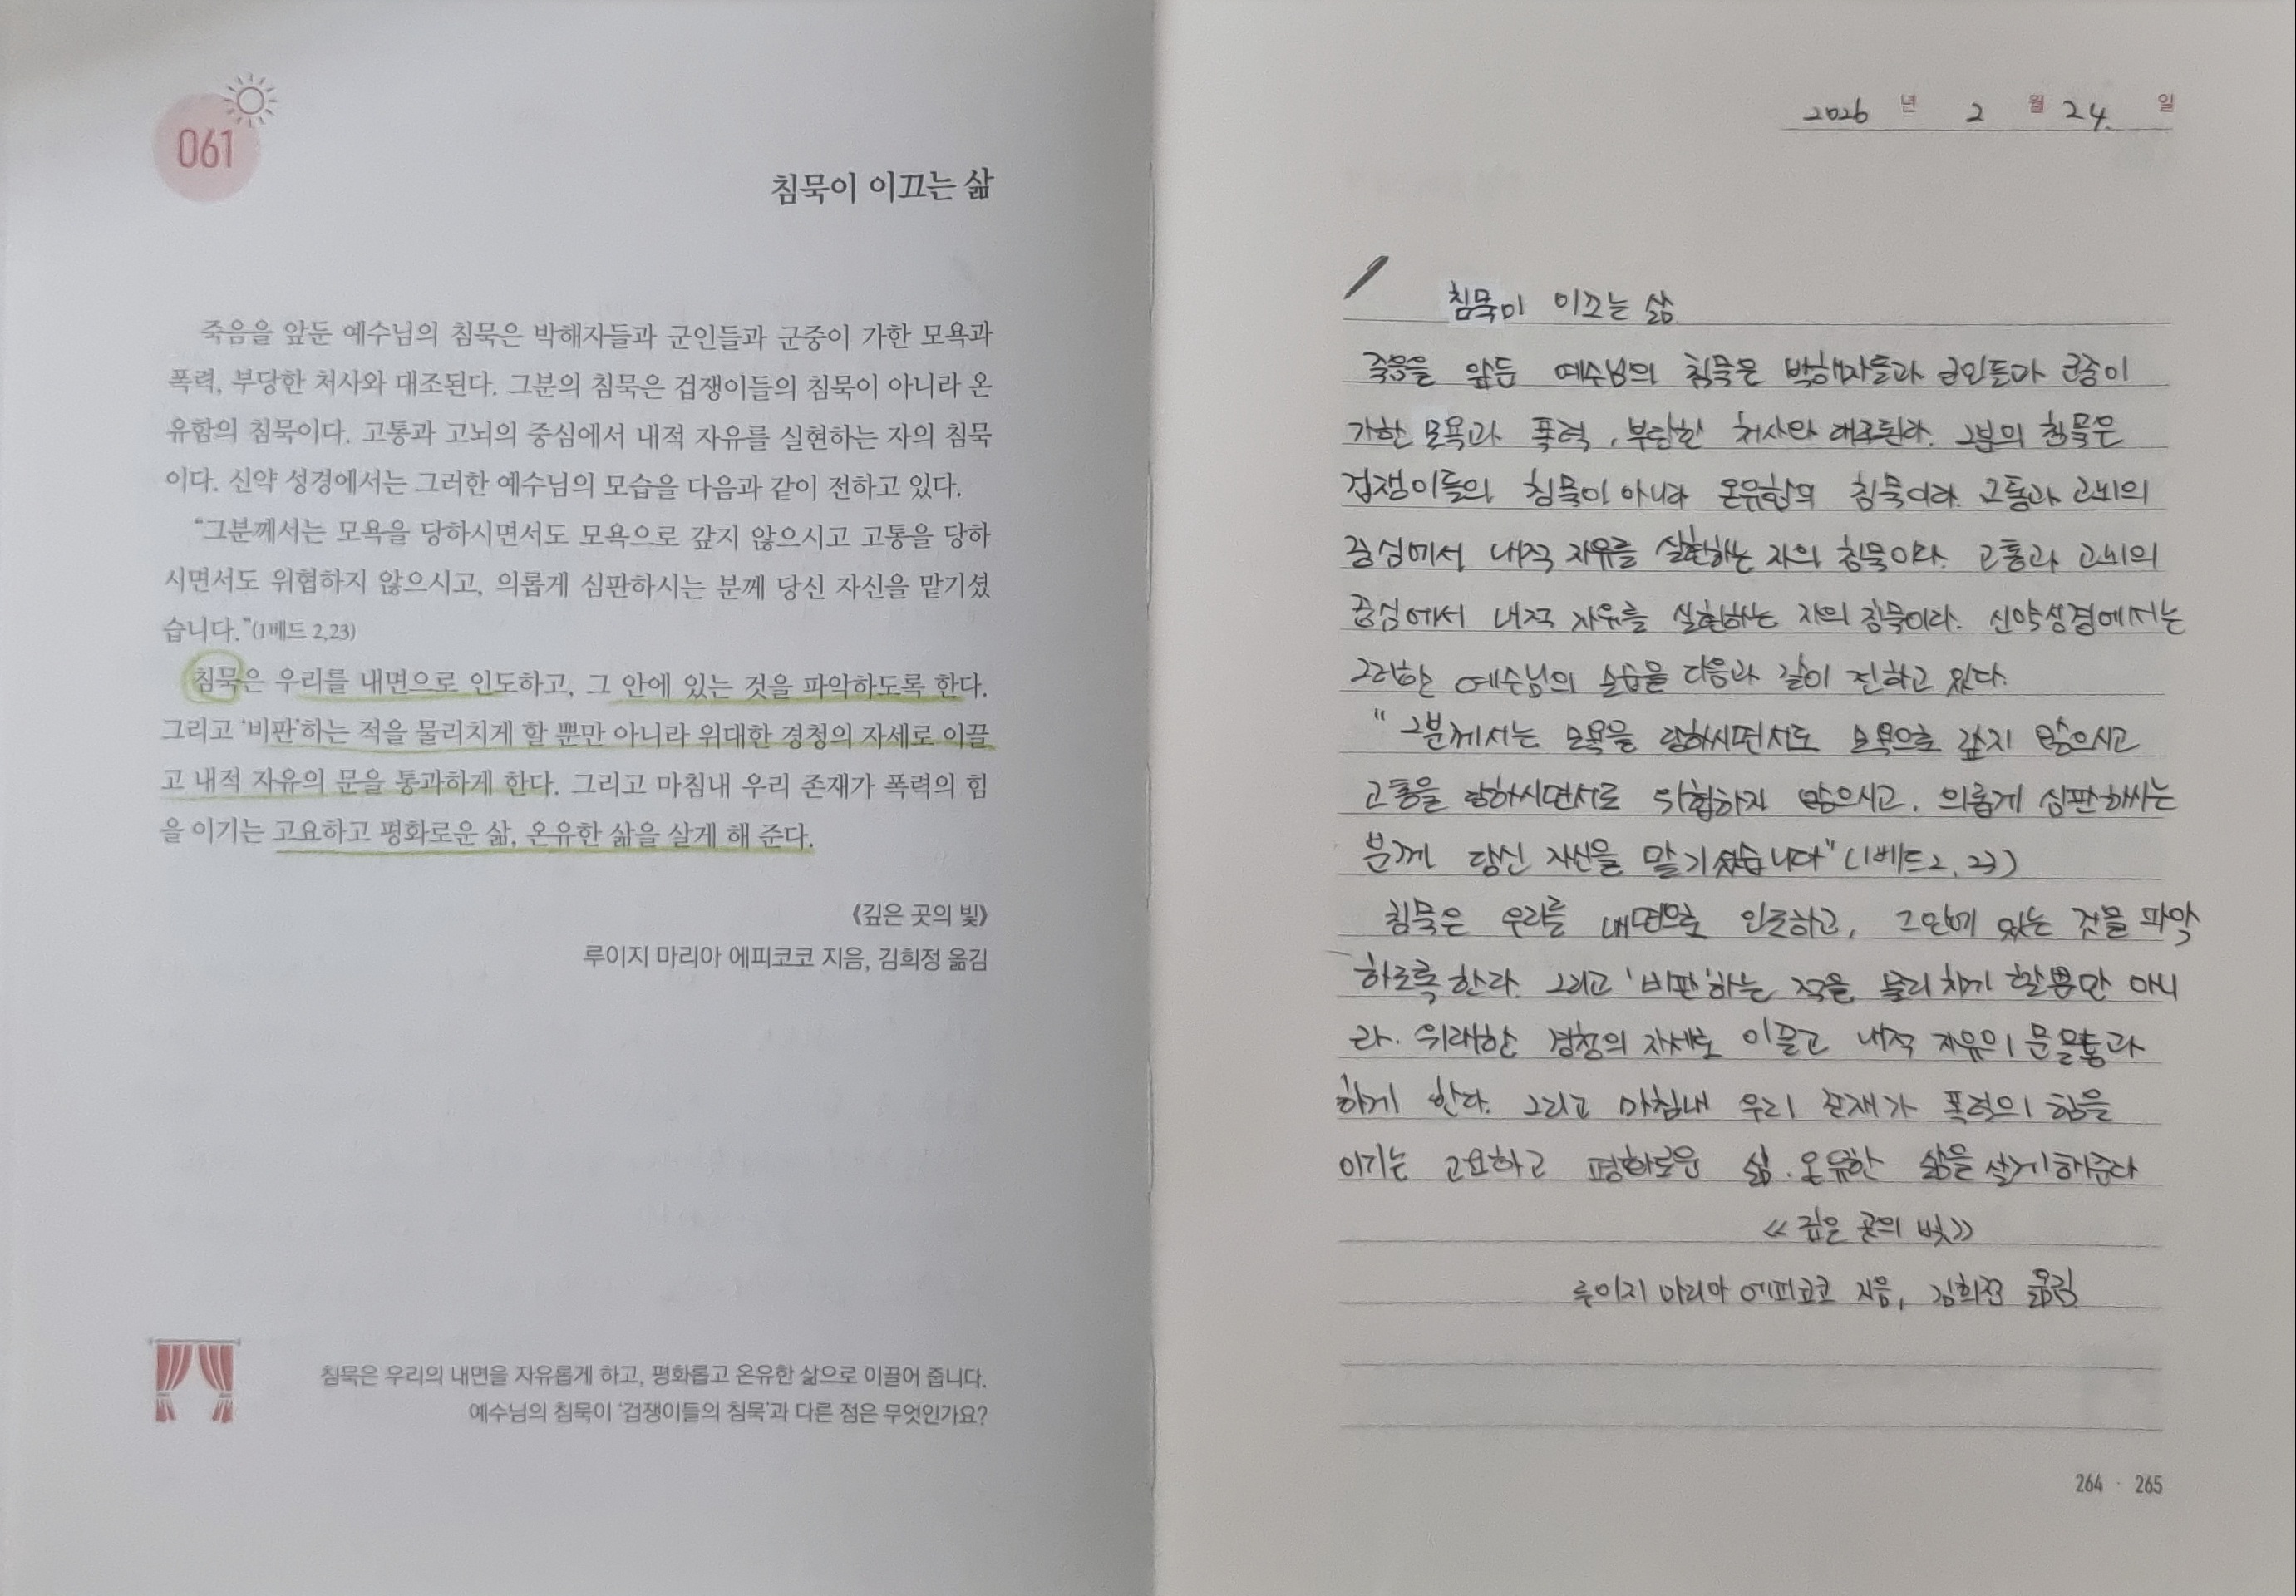 061
침묵이 이끄는 삶
죽음을 앞둔 예수님의 침묵은 박해자들과 군인들과 군중이 가한 모욕과
폭력, 부당한 처사와 대조된다. 그분의 침묵은 겁쟁이들의 침묵이 아니라 온
유함의 침묵이다. 고통과 고뇌의 중심에서 내적 자유를 실현하는 자의 침묵
이다. 신약 성경에서는 그러한 예수님의 모습을 다음과 같이 전하고 있다.
“그분께서는 모욕을 당하시면서도 모욕으로 갚지 않으시고 고통을 당하
시면서도 위협하지 않으시고, 의롭게 심판하시는 분께 당신 자신을 맡기셨
습니다.”(1베드 2,23)
침묵은 우리를 내면으로 인도하고, 그 안에 있는 것을 파악하도록 한다.
그리고 ‘비판’하는 적을 물리치게 할 뿐만 아니라 위대한 경청의 자세로 이끌
고 내적 자유의 문을 통과하게 한다. 그리고 마침내 우리 존재가 폭력의 힘
을 이기는 고요하고 평화로운 삶, 온유한 삶을 살게 해 준다.
《깊은 곳의 빛》
루이지 마리아 에피코코 지음, 김희정 옮김
침묵은 우리의 내면을 자유롭게 하고, 평화롭고 온유한 삶으로 이끌어 줍니다.
예수님의 침묵이 ‘겁쟁이들의 침묵’과 다른 점은 무엇인가요?
2026 년 2 월 24. 일
침묵이 이끄는 삶
죽음을 앞둔 예수님의 침묵은 박해자들과 군인들과 군중이
가한 모욕과 폭력, 부당한 처사와 대조된다. 그분의 침묵은
겁쟁이들의 침묵이 아니라 온유함의 침묵이다. 고통과 고뇌의
중심에서 내적 자유를 실현하는 자의 침묵이다. 고통과 고뇌의
중심에서 내적 자유를 실현하는 자의 침묵이다. 신약성경에서는
그러한 예수님의 다음과 같이 전하고 있다.
“그분께서는 모욕을 당하시면서도 모욕으로 갚지 않으시고
고통을 당하시면서도 위협하지 않으시고, 의롭게 심판하시는
분께 당신 자신을 맡기셨습니다” (1베드 2, 23)
침묵은 우리를 내면으로 인도하고, 그 안에 있는 것을 파악
하도록 한다. 그리고 ‘비판’하는 적을 물리치게 할 뿐만 아니
라. 위대한 경청의 자세로 이끌고 내적 자유의 문을 통과
하게 한다. 그리고 마침내 우리 존재가 폭력의 힘을
이기는 고요하고 평화로운 삶. 온유한 삶을 살게 해준다
《깊은 곳의 빛》
루이지 마리아 에피코코 지음, 김희정 옮김
264 · 265